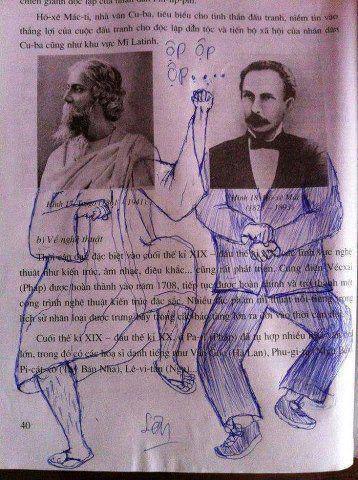 chiến giành độc lập của nhân dân Phi-líp-pin.
Hô-xê Mác-ti, nhà văn Cu-ba, tiêu biểu cho tinh thần đấu tranh, niềm tin vào
thắng lợi của cuộc đấu tranh cho độc lập dân tộc và tiến bộ xã hội của nhân dân
Cu-ba cũng như khu vực Mĩ Latinh.
ỘP ỘP
ỘP.....
Hình 17. Tago (1861 - 1941)
Hình 18. Hô-xê Mác-ti
b) Về nghệ thuật
Thời cận đại, đặc biệt vào cuối thế kỉ XIX – đầu thế kỉ XX, các lĩnh vực nghệ
thuật như kiến trúc, âm nhạc, điêu khắc... cũng rất phát triển. Cung điện Vécxai
(Pháp) được hoàn thành vào năm 1708, tiếp tục được hoàn chỉnh và trở thành một
công trình nghệ thuật kiến trúc đặc sắc. Nhiều tác phẩm nghệ thuật nổi tiếng trong
lịch sử nhân loại được trưng bày trong các bảo tàng lớn ra đời vào thời cận đại
Cuối thế kỉ XIX – đầu thế kỉ XX, ở Pa-ri (Pháp) đã tụ hợp nhiều
lớn, trong đó có các hoạ sĩ danh tiếng như Van Gốc (Hà Lan), Phu-gi-ta (Nhật Bản),
Pi-cát-xô (Tây Ban Nha), Lê-vi-tan (Nga)...
40